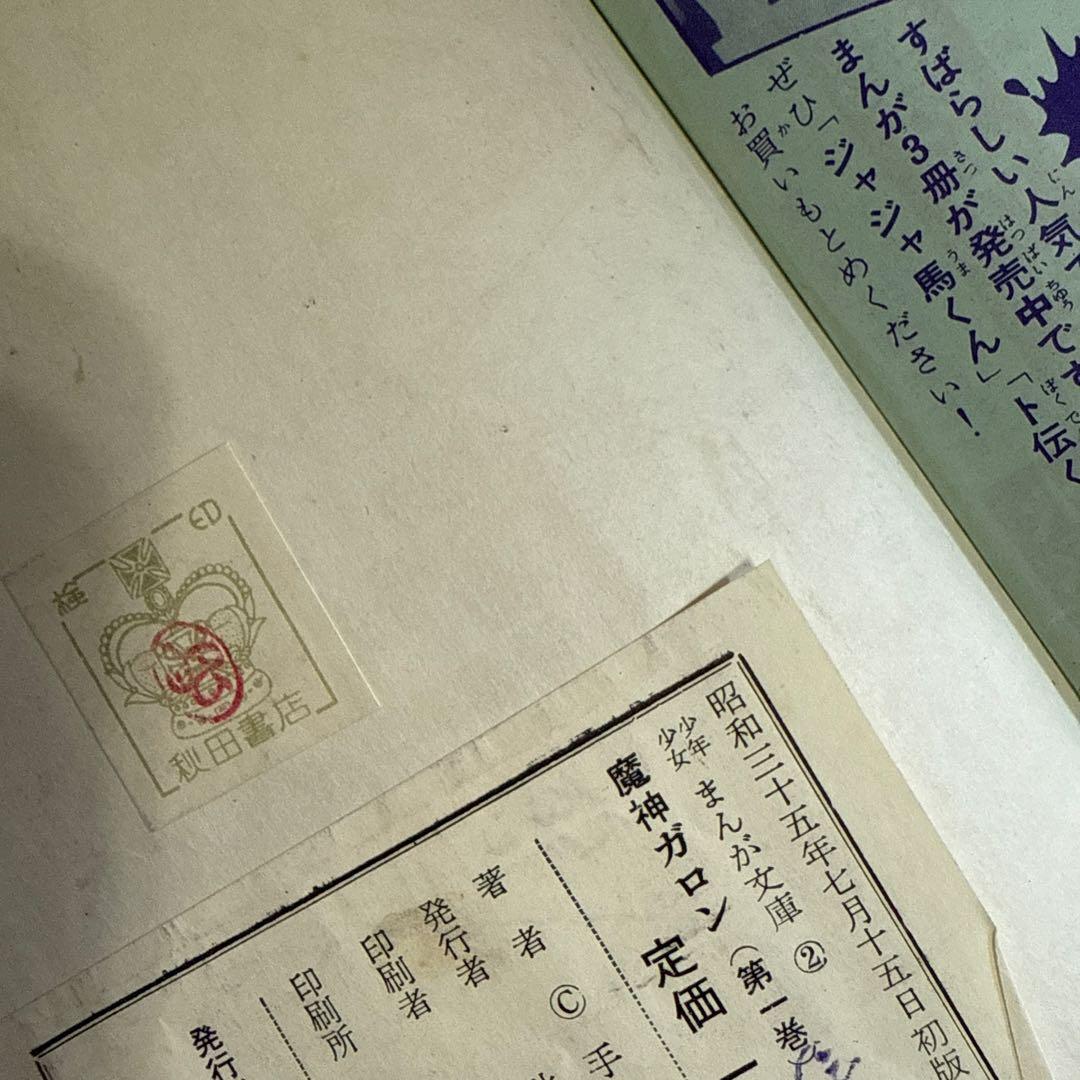 すばらしい人気で
まんが3冊が発売中です
ぜひ「ジャジャ馬くん」「ト伝く
お買いもとめください！
検
印
秋田書店
昭和三十五年七月十五日初版
少年
少女
まんが文庫②
魔神ガロン（第一巻
定価
著者
© 手
発行者
印刷者
印刷所
発行